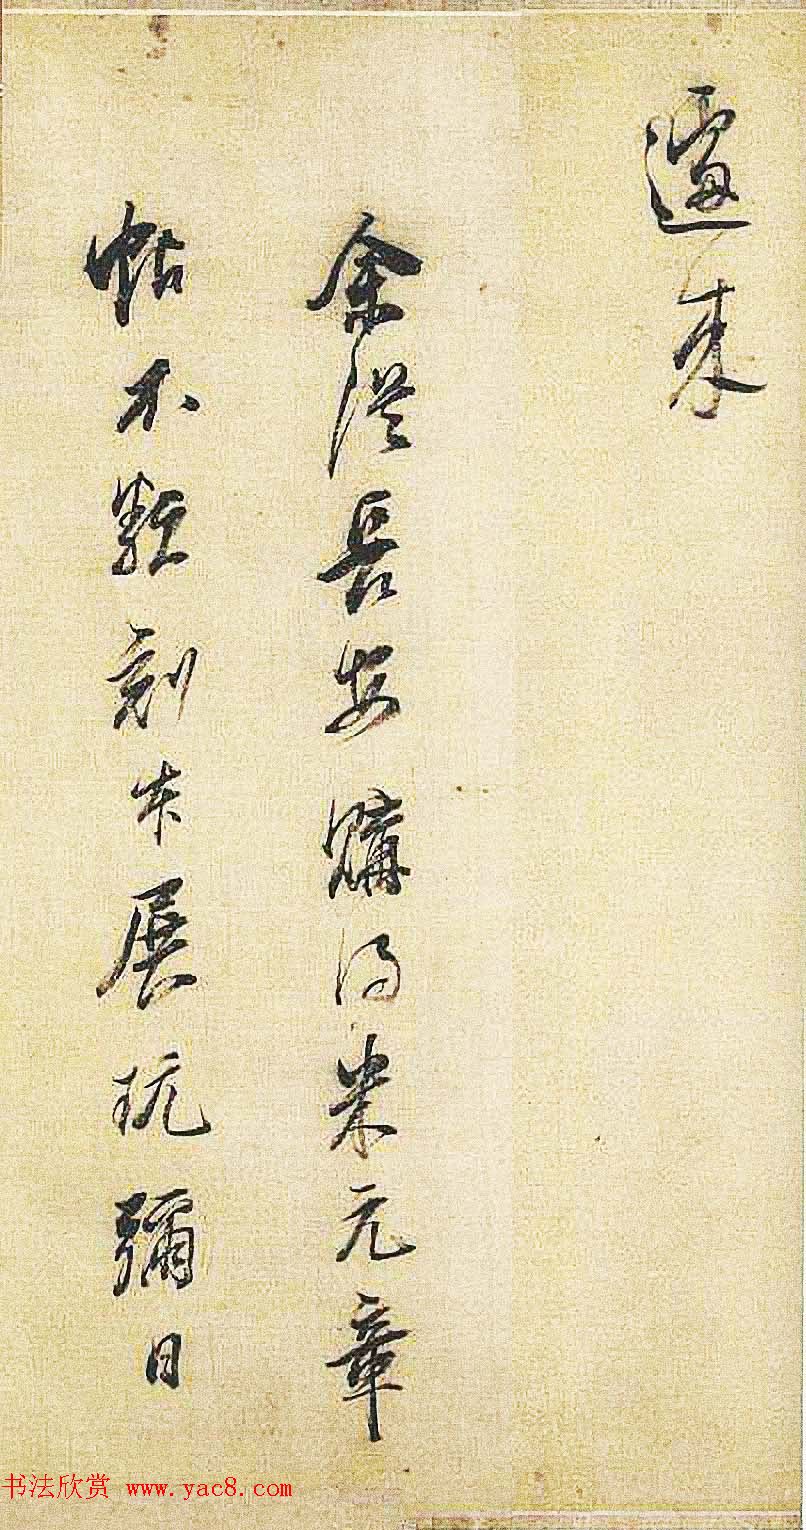 遽来
余從長安購得米元章
帖不類刻本展玩彌日
书法欣赏 www.yac8.com